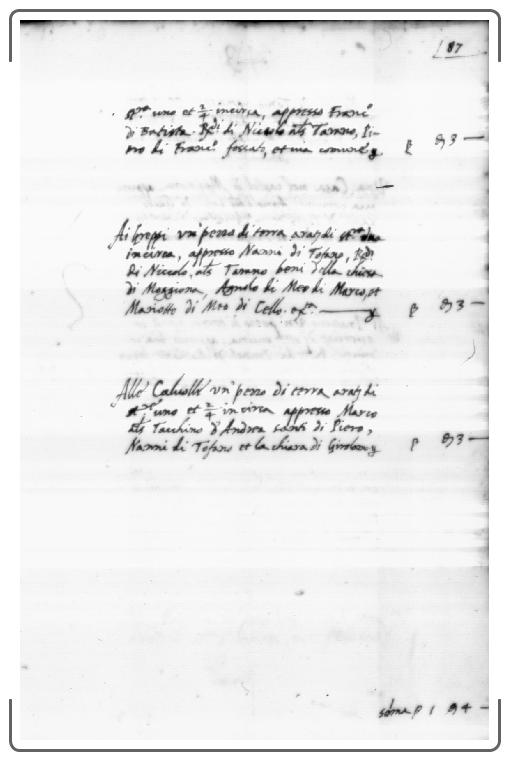 87
uno et 2/4 incirca, appresso Franc.o
di Batista. Rdi di Niccolo als Tarano, Pi-
ero di Franc.o foscati, et via comune
93 —
Ai Greppi un' pezzo di terra aratdi st.ra dua
incirca, appresso Nanni di Tofano, Rdi
di Niccolo, als Tarano beni della chiesa
di Moggiona, Agnolo di Meo di Marco, et
Mariotto di Meo di Cello. 93 —
Alle un' pezzo di terra aratdi
uno et 2/4 incirca appresso Marco
als Tacchino d'Andrea santi di Piero,
Nanni di Tofano et la chiara di 93 —
soma p 1 94 —